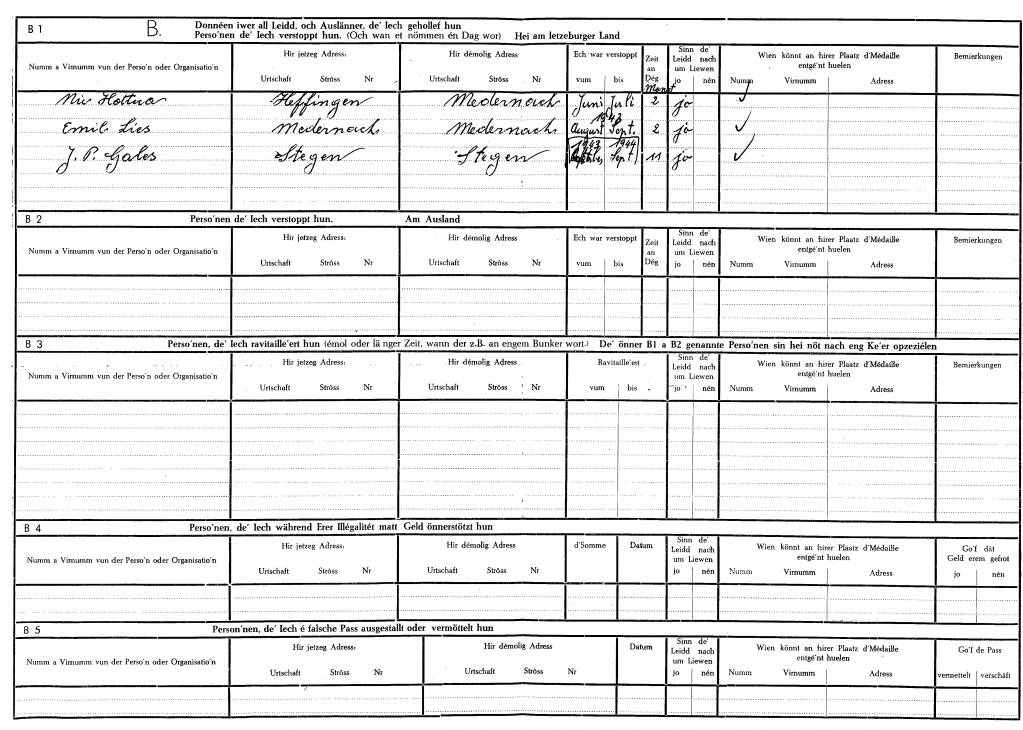 B 1 B. Donnéen iwer all Leidd, och Auslänner, de' Iech gehollef hun
Perso'nen de' Iech verstoppt hun. (Och wan et nömmen én Dag wor) Hei am letzeburger Land
Numm a Virnumm vun der Perso'n oder Organisatio'n Hir jetzeg Adress: Hir démolig Adress Ech war verstoppt Zeit an Dég Sinn de' Leidd nach um Liewen Wien könnt an hirer Plaatz d'Médaille entgé'nt huelen Bemierkungen
Urtschaft Ströss Nr Urtschaft Ströss Nr vum bis Monat jo nén Numm Virnumm Adress
Nic Hottua Heffingen Medernach Juni Juli 2 jo ✓
1943
Emil Lies Medernach Medernach August Sept. 2 jo ✓
1943 1944
J. P. Gales Stegen Stegen Sept 11 jo ✓
B 2 Perso'nen de' Iech verstoppt hun. Am Ausland
Numm a Virnumm vun der Perso'n oder Organisatio'n Hir jetzeg Adress: Hir démolig Adress Ech war verstoppt Zeit an Dég Sinn de' Leidd nach um Liewen Wien könnt an hirer Plaatz d'Médaille entgé'nt huelen Bemierkungen
Urtschaft Ströss Nr Urtschaft Ströss Nr vum bis jo nén Numm Virnumm Adress
B 3 Perso'nen, de' Iech ravitaille'ert hun (émol oder länger Zeit, wann der z.B. an engem Bunker wort.) De' önner B1 a B2 genannte Perso'nen sin hei nöt nach eng Ke'er opzeziélen
Numm a Virnumm vun der Perso'n oder Organisatio'n Hir jetzeg Adress: Hir démolig Adress Ravitaille'ert Sinn de' Leidd nach um Liewen Wien könnt an hirer Plaatz d'Médaille entgé'nt huelen Bemierkungen
Urtschaft Ströss Nr Urtschaft Ströss Nr vum bis jo nén Numm Virnumm Adress
B 4 Perso'nen, de' Iech während Erer Illégalitét matt Geld önnerstötzt hun
Numm a Virnumm vun der Perso'n oder Organisatio'n Hir jetzeg Adress: Hir démolig Adress d'Somme Datum Sinn de' Leidd nach um Liewen Wien könnt an hirer Plaatz d'Médaille entgé'nt huelen Go'f dât Geld erem gefrot
Urtschaft Ströss Nr Urtschaft Ströss Nr jo nén Numm Virnumm Adress jo nén
B 5 Person'nen, de' Iech é falsche Pass ausgestallt oder vermöttelt hun
Numm a Virnumm vun der Perso'n oder Organisatio'n Hir jetzeg Adress: Hir démolig Adress Datum Sinn de' Leidd nach um Liewen Wien könnt an hirer Plaatz d'Médaille entgé'nt huelen Go'f de Pass
Urtschaft Ströss Nr Urtschaft Ströss Nr jo nén Numm Virnumm Adress vermettelt verschäft